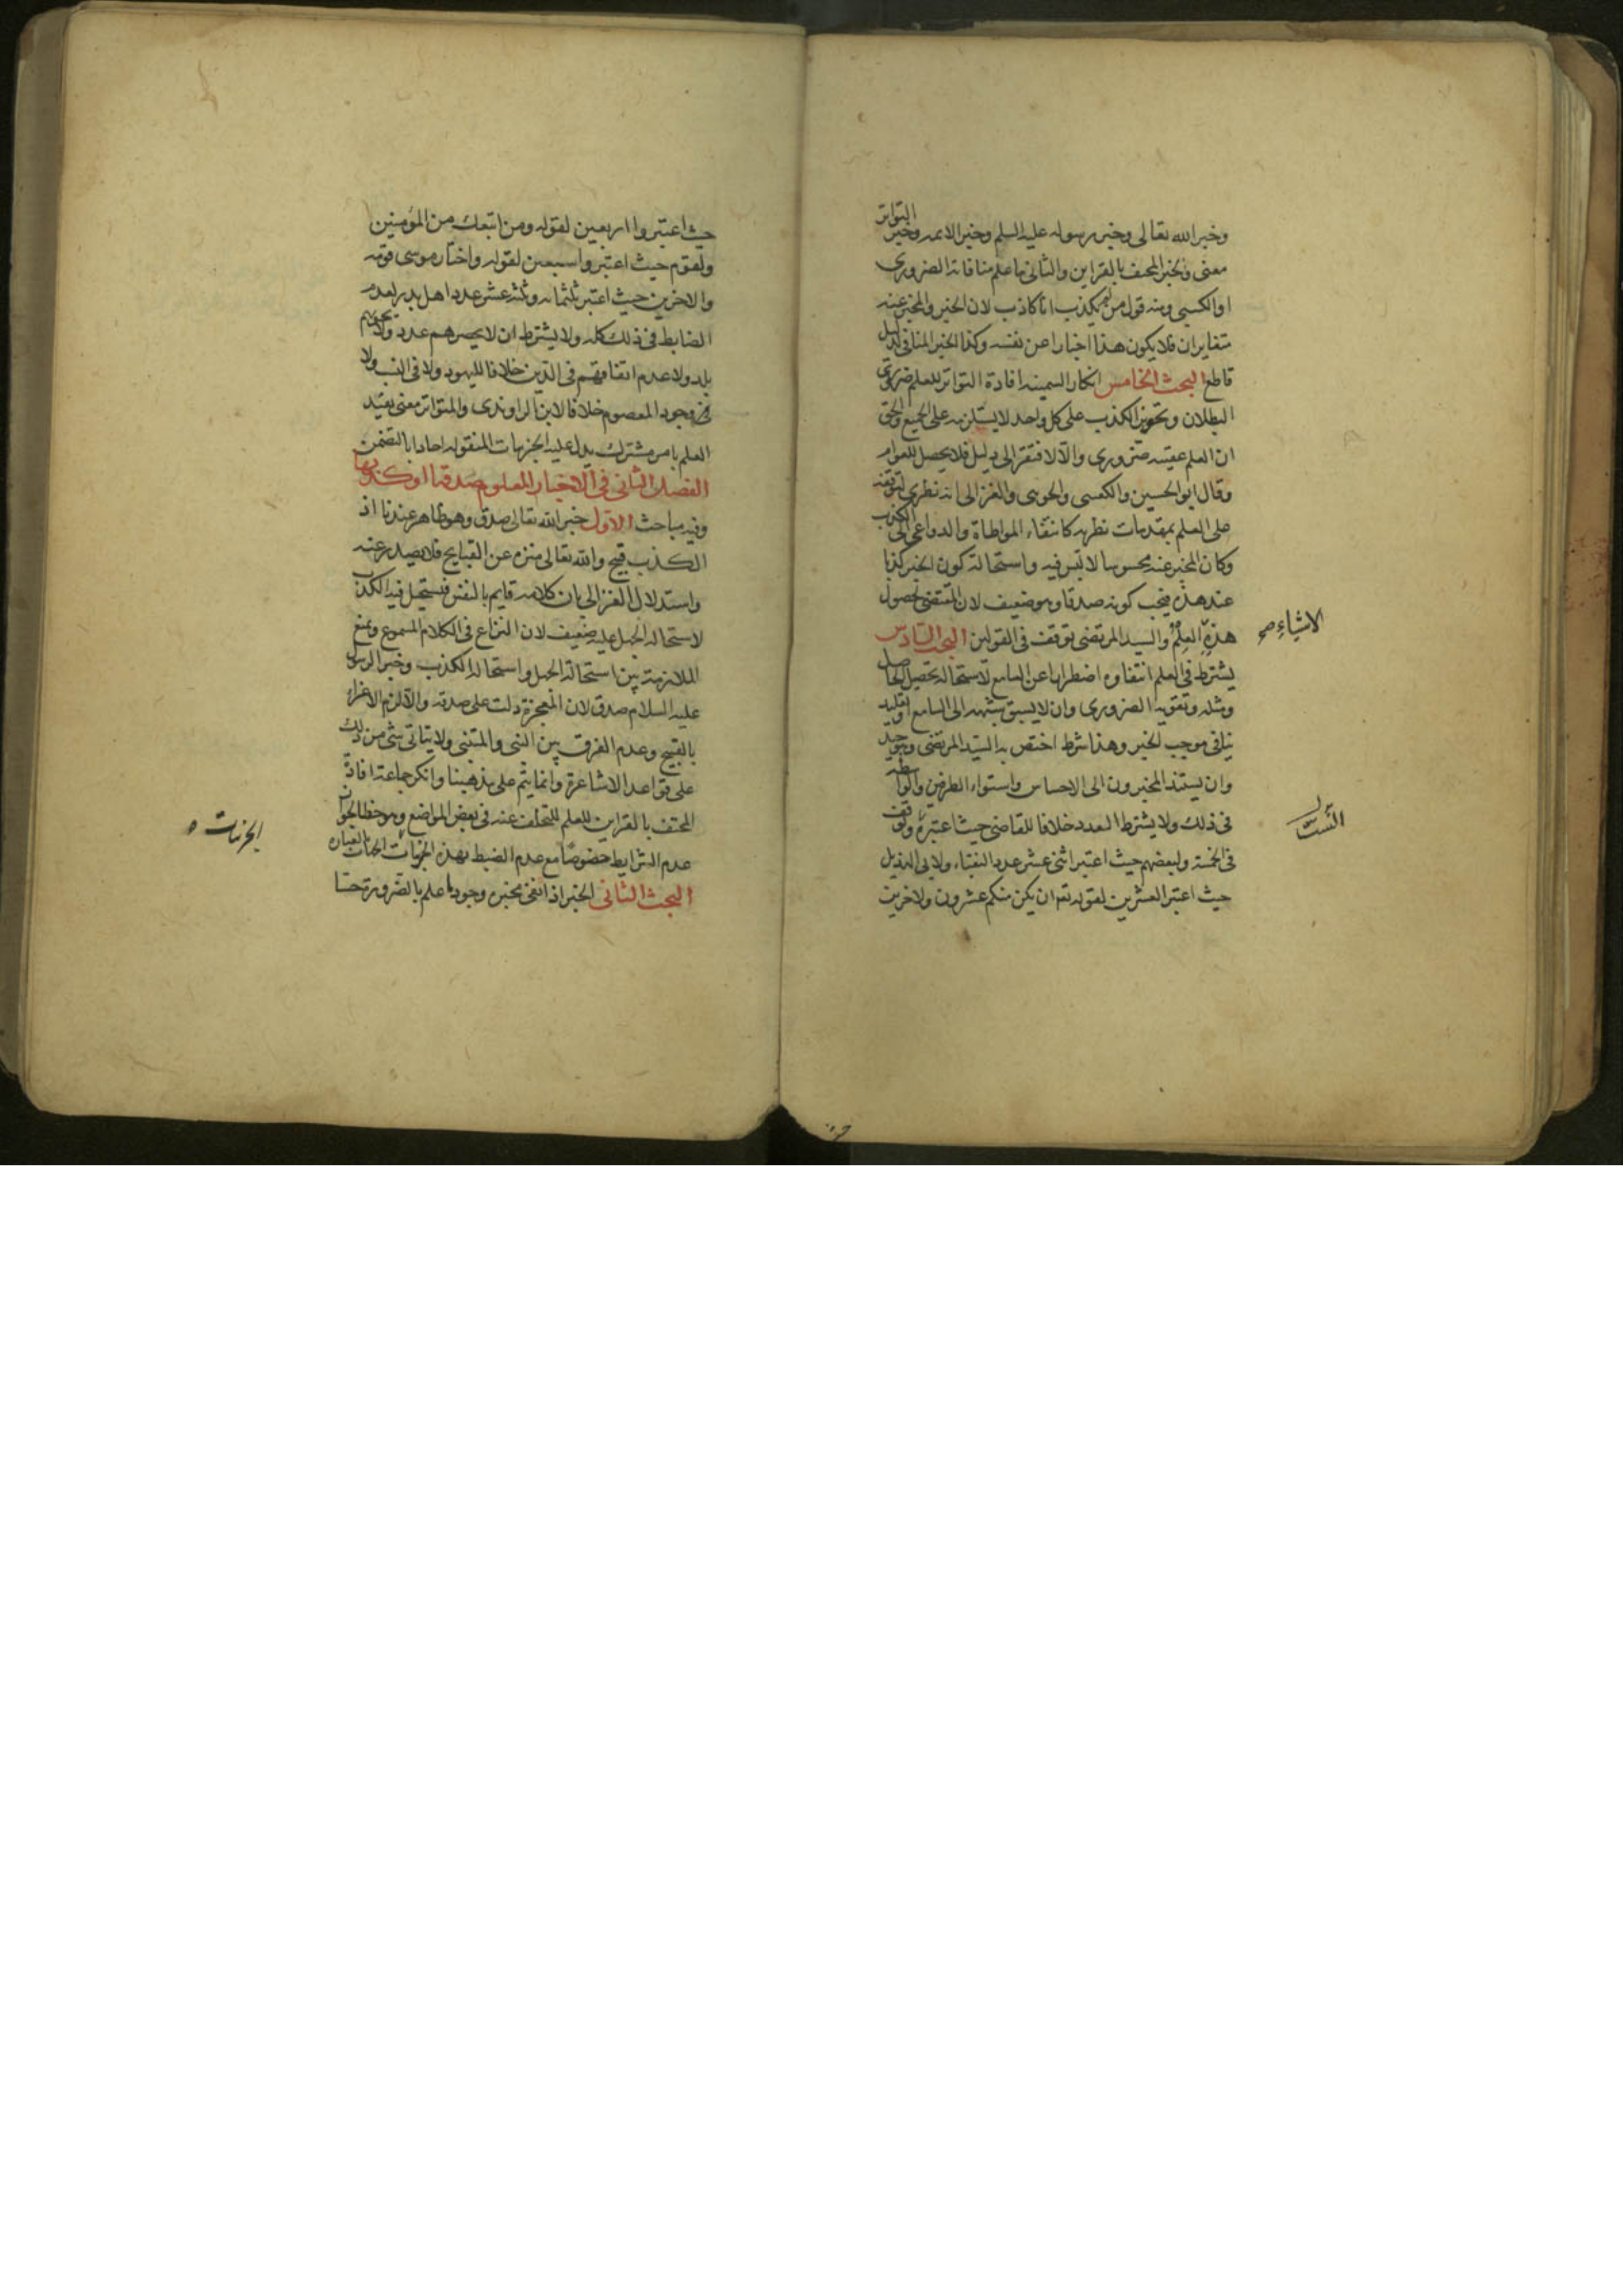 وخبر الله تعالى وخبر رسوله عليه السلم وخبر الائمه وخبر التواتر
معنى وخبر المحتف بالقراين والثانى ما علم منافاته الضرورى
او الكسبى ومنه قول من لم يكذب انا كاذب لان الخبر والمخبر عنه
متغايران فلا يكون هذا اخبارا عن نفسه وكذا الخبر المنافى لدليل
قاطع البحث الخامس انكار السمنيه افادة التواتر للعلم ضرورى
البطلان وتجويز الكذب على كل واحد لا يستلزمه على الجميع والحق
ان العلم عقيبه ضرورى والا لافتقر الى دليل فلا يحصل للعوام
وقال ابو الحسين والكعبى والجوينى والغزالى انه نظرى لتوقفه
على العلم بمقدمات نظريه كانتفاء المواطاة والدواعى الى الكذب
وكان المخبر عنه محسوسا لا لبس فيه واستحالة كون الخبر كذبا
عند هذه فيجب كونه صدقا وهو ضعيف لان المقتضى لحصول
هذه العلم والسيد المرتضى توقف فى القولين البحث السادس
الاشياء صح
يشترط فى العلم انتفاوه اضطرارا عن السامع لاستحالة تحصيل الحاصل
ومثله وتقويه الضرورى وان لا يسبق شبهه الى السامع او تقليد
ينافى موجب الخبر وهذا شرط اختص به السيد المرتضى وهو جيد
وان يستند المخبرون الى الاحساس واستواء الطرفين والواسطه
فى ذلك ولا يشترط العدد خلافا للقاضى حيث اعتبره وتوقف
فى الخمسة ولبعضهم حيث اعتبر اثنى عشر عدد النقباء ولابى الهذيل
حيث اعتبر العشرين لقوله تع ان يكن منكم عشرون ولاخرين
حيث اعتبروا اربعين لقوله ومن اتبعك من المؤمنين
ولقوم حيث اعتبروا سبعين لقوله واختار موسى قومه
والاخرين حيث اعتبر ثلثمائه وثلثه عشر عدد اهل بدر لعدم
الضابط فى ذلك كله ولا يشترط ان لا يحصرهم عدد ولا يحويهم
بلد ولا عدم اتفاقهم فى الدين خلافا لليهود ولا فى النسب ولا
وجود المعصوم خلافا لابن الراوندى والمتواتر معنى يفيد
العلم بامر مشترك يدل عليه الجزئيات المنقوله احادا بالتضمن
الفصل الثانى فى الاخبار المعلوم صدقها او كذبها
وفيه مباحث الاول خبر الله تعالى صدق وهو ظاهر عندنا اذ
الكذب قبيح والله تعالى منزه عن القبايح فلا يصدر عنه
واستدلال الغزالى بان كلامه قايم بالنفس فيستحيل فيه الكذب
لاستحالة الجهل عليه ضعيف لان النزاع فى الكلام المسموع ومنع
الملازمة بين استحالة الجهل واستحالة الكذب وخبر الرسول
عليه السلام صدق لان المعجزة دلت على صدقه والا لزم الاغراء
بالقبيح وعدم الفرق بين النبى والمتنبى ولا يتاتى شى من ذلك
على قواعد الاشاعرة وانما يتم على مذهبنا وانكر جماعة افادة
المحتف بالقراين للعلم للتخلف عنه فى بعض المواضع وهو خطا لجواز
عدم الشرايط خصوصا مع عدم الضبط لهذه الجزئيات
الجزئيات ه
البحث الثانى الخبر اذا انفى مخبره وجودا علم بالضرورة حسا